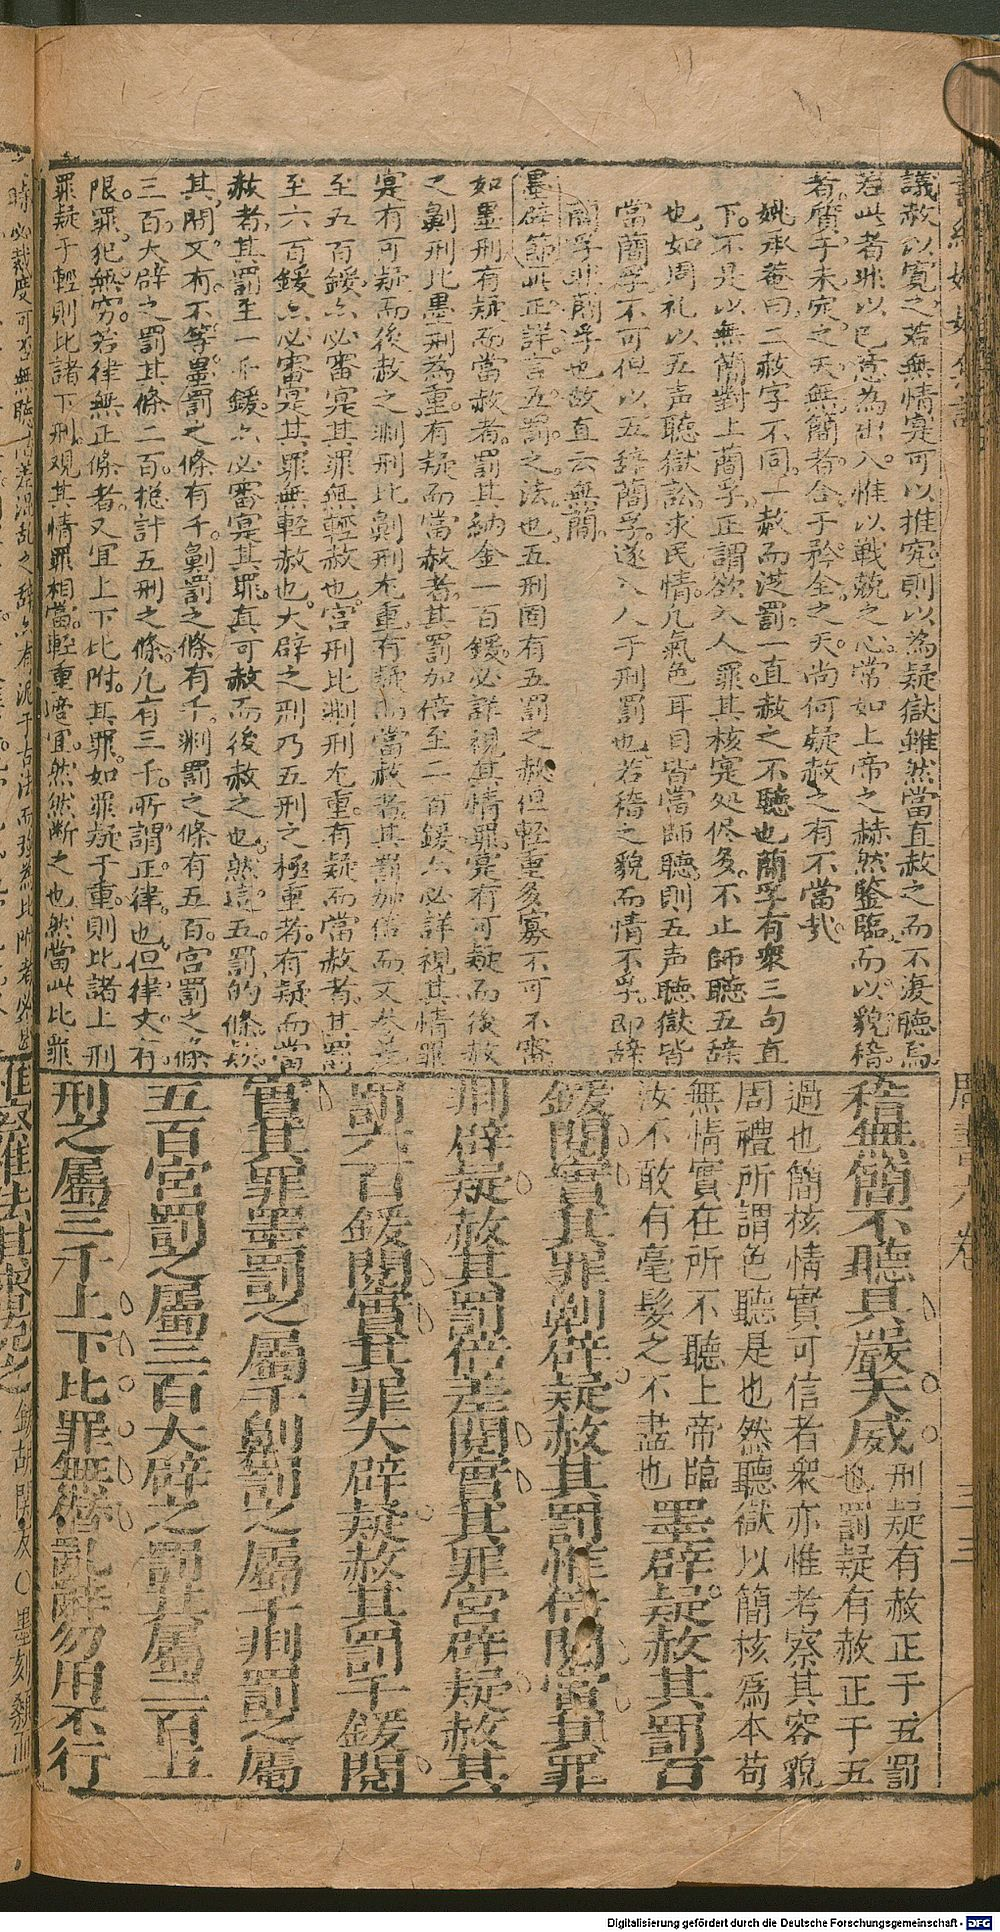 議赦以寬之若無情實可以推究則以為疑獄雖然當直赦之而不復聽焉
若此者非以已意為出入惟以戰兢之心常如上帝之赫然鑒臨而以貌稽
者質于未定之天無簡者合于矜全之天尚何疑赦之有不當哉
姚承菴曰二赦字不同一赦而從罰一直赦之不聽也簡孚有衆三句直
下不是以無簡對上簡孚正謂欲入人罪其核寔処侭多不止師聽五辞
也如周礼以五声聽獄訟求民情凢氣色耳目皆當師聽則五声聽獄皆
當簡孚不可但以五辞簡孚遂入人于刑罰也若稽之貌而情不孚即辞
簡孚非簡孚也故直云無簡
墨辟節此正詳言五罰之法也五刑固有五罰之赦但軽重多寡不可不審
如墨刑有疑而當赦者罰其納金一百鍰必詳視其情罪寔有可疑而後赦
之劓刑比墨刑為重有疑而當赦者其罰加倍至二百鍰亦必詳視其情罪
寔有可疑而後赦之剕刑比劓刑尤重有疑而當赦者其罰加倍而又参差
至五百鍰亦必審寔其罪無輕赦也宮刑比剕刑尤重有疑而當赦者其罰
至六百鍰亦必審寔其罪無軽赦也大辟之刑乃五刑之極重者有疑而當
赦者其罰至一千鍰亦必審寔其罪真可赦而後赦之也然這五罰的條欵
其間又有不等墨罰之條有千劓罰之條有千剕罰之條有五百宮罰之條
三百大辟之罰其條二百捴計五刑之條凢有三千所謂正律也但律文有
限罪犯無窮若律無正條者又宜上下比附其罪如罪疑于重則比諸上刑
罪疑于軽則比諸下刑观其情罪相當軽重適宜然然断之也然當此比罪
周書六卷
三三
稽無簡不聽具嚴天威刑疑有赦正于五罰
也罰疑有赦正于五
過也簡核情實可信者衆亦惟考察其容貌
周禮所謂色聽是也然聽獄以簡核爲本苟
無情實在所不聽上帝臨
汝不敢有毫髮之不盡也墨辟疑赦其罰百
鍰閱實其罪劓辟疑赦其罰惟倍閱實其罪
剕辟疑赦其罰倍差閱實其罪宮辟疑赦其
罰六百鍰閱實其罪大辟疑赦其罰千鍰閱
實其罪墨罰之屬千劓罰之屬千剕罰之屬
五百宮罰之屬三百大辟之罰其屬二百五
刑之屬三千上下比罪無僭亂辭勿用不行
Digitalisierung gefördert durch die Deutsche Forschungsgemeinschaft - DFG